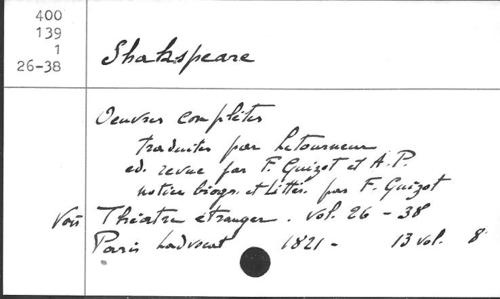 400
139
1
26-38
Shakspeare
Oeuvres complètes
traduites par Letourneur
ed. revue par F. Guizot et A.P.
notice biogr. et littér. par F. Guizot
Voir Théatre étranger. vol. 26 - 38
Paris Ladvocat 1821 - 13 vol. 8°